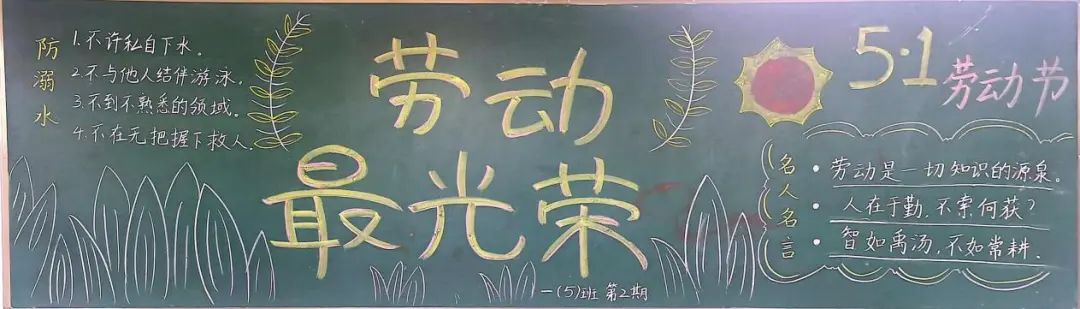 防溺水
1.不许私自下水。
2.不与他人结伴游泳。
3.不到不熟悉的领域。
4.不在无把握下救人。
劳动
最光荣
一(5)班 第2期
5·1
劳动节
名人名言
·劳动是一切知识的源泉。
·人在于勤,不索何获?
·智如禹汤,不如常耕.